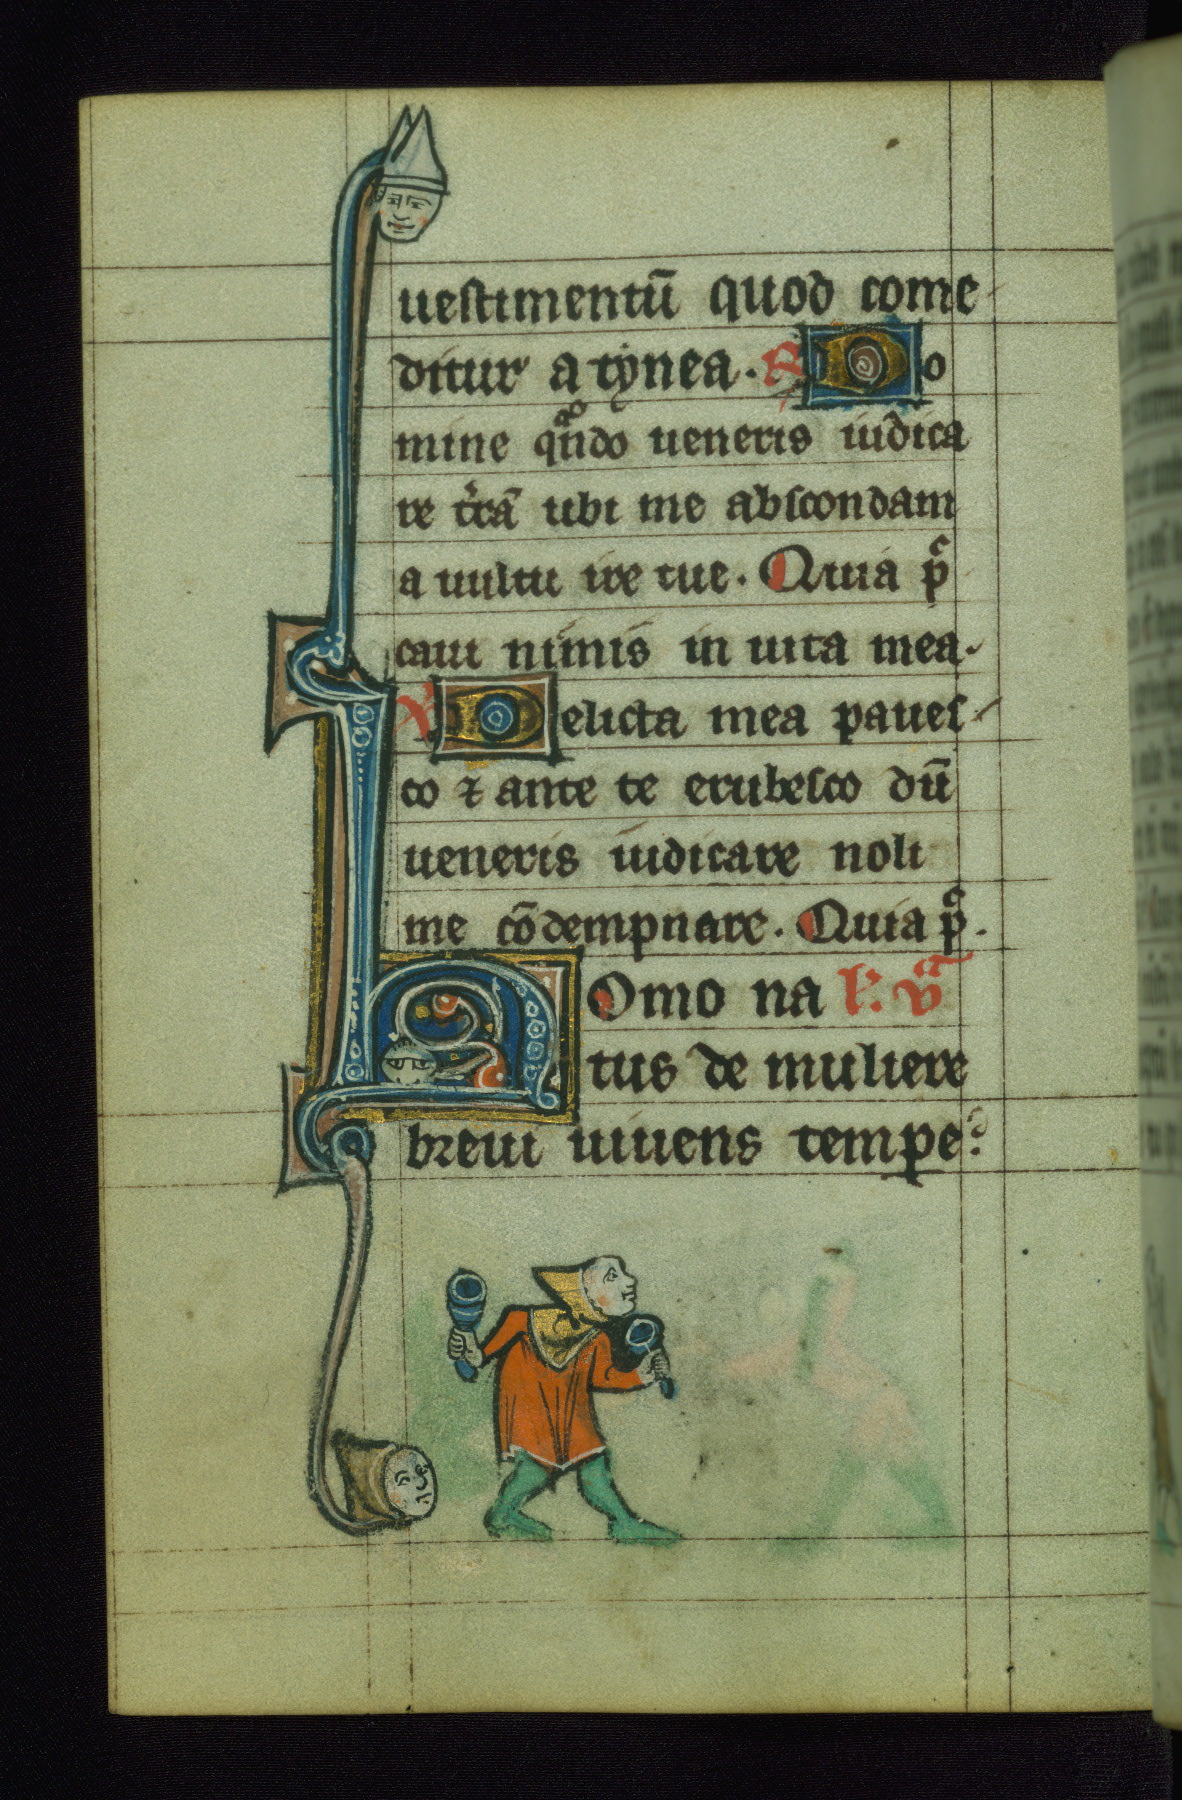 uestimentū quod come
ditur a tynea. R Do
mine qn̄do ueneris iudica
re t̄rā ubi me abscondam
a uultu ire tue. Quia p̄
caui nimis in uita mea.
V Delicta mea paues
co ⁊ ante te erubesco dū
ueneris iudicare noli
me cōdempnare. Quia p̄.
HOmo na l'. va
tus de muliere
breui uiuens tempe